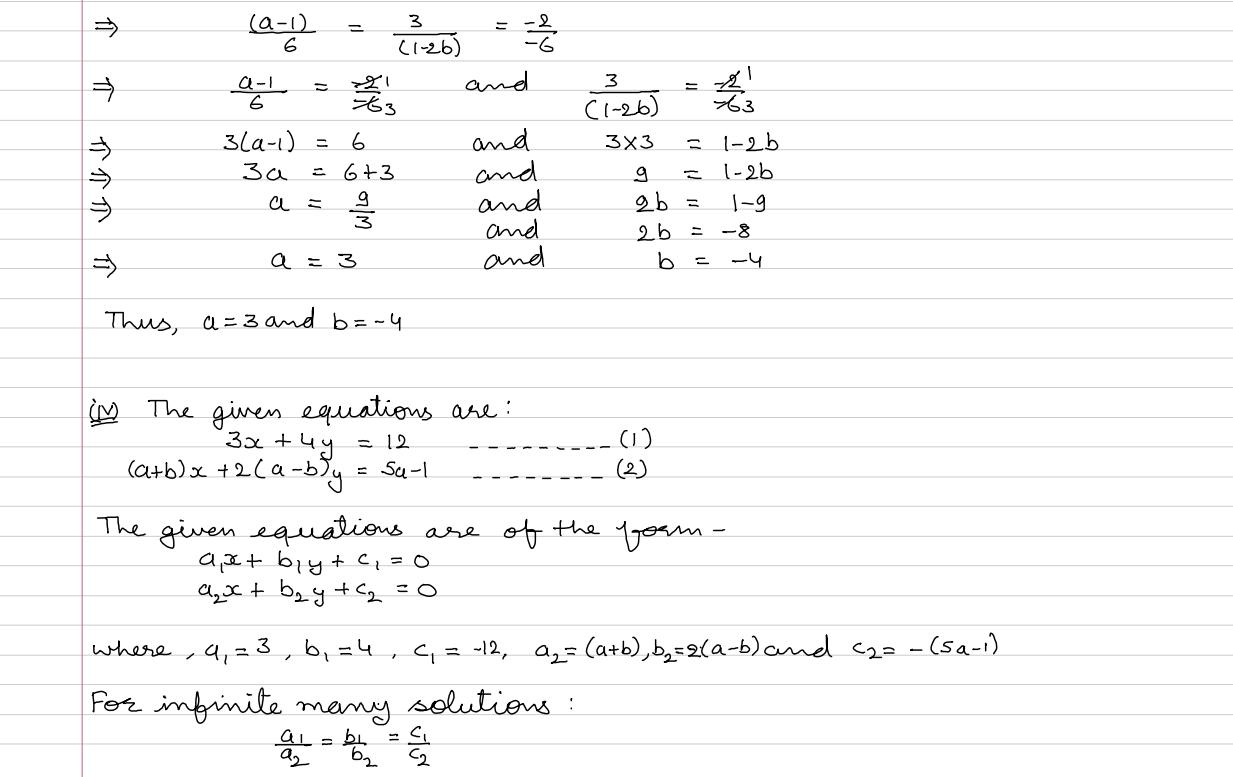 ⇒ (a-1)/6 = 3/(1-2b) = -2/-6
⇒ a-1/6 = -2 1/-6 3 and 3/(1-2b) = -2 1/-6 3
⇒ 3(a-1) = 6 and 3×3 = 1-2b
⇒ 3a = 6+3 and 9 = 1-2b
⇒ a = 9/3 and 2b = 1-9
and 2b = -8
⇒ a = 3 and b = -4
Thus, a=3 and b=-4
(iv) The given equations are:
3x + 4y = 12 --------- (1)
(a+b)x + 2(a-b)y = 5a-1 -------- (2)
The given equations are of the form -
a₁x + b₁y + c₁ = 0
a₂x + b₂y + c₂ = 0
where, a₁=3, b₁=4, c₁ = -12, a₂=(a+b), b₂=2(a-b) and c₂= -(5a-1)
For infinite many solutions:
a₁/a₂ = b₁/b₂ = c₁/c₂